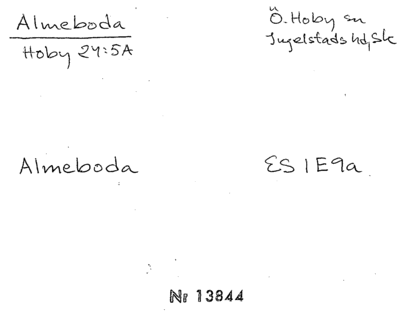 Almeboda
Hoby 24:5A
Ö. Hoby sn
Ingelstads hd, Sk
Almeboda
ES 1E9a
Nr 13844